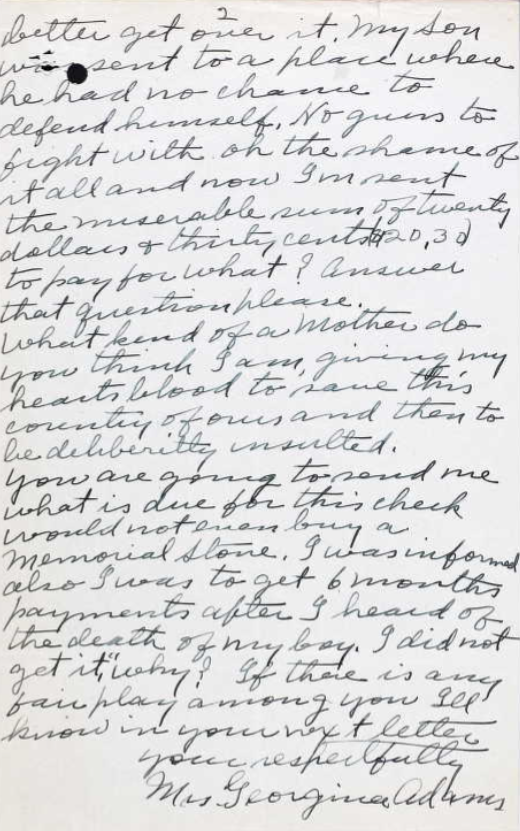 2
better get over it. My son
was sent to a place where
he had no chance to
defend himself. No guns to
fight with oh the shame of
it all and now I'm sent
the miserable sum of twenty
dollars & thirty cents ($20,30)
to pay for what? Answer
that question please.
What kind of a Mother do
you think I am, giving my
hearts blood to save this
country of ours and then to
be deliberitly insulted.
You are going to send me
what is due for this check
would not even buy a
Memorial Stone. I was informed
also I was to get 6 months
payments after I heard of
the death of my boy. I did not
get it," why? If there is any
fair play among you I'll
know in your next letter
your respectfully
Mrs Georgina Adams